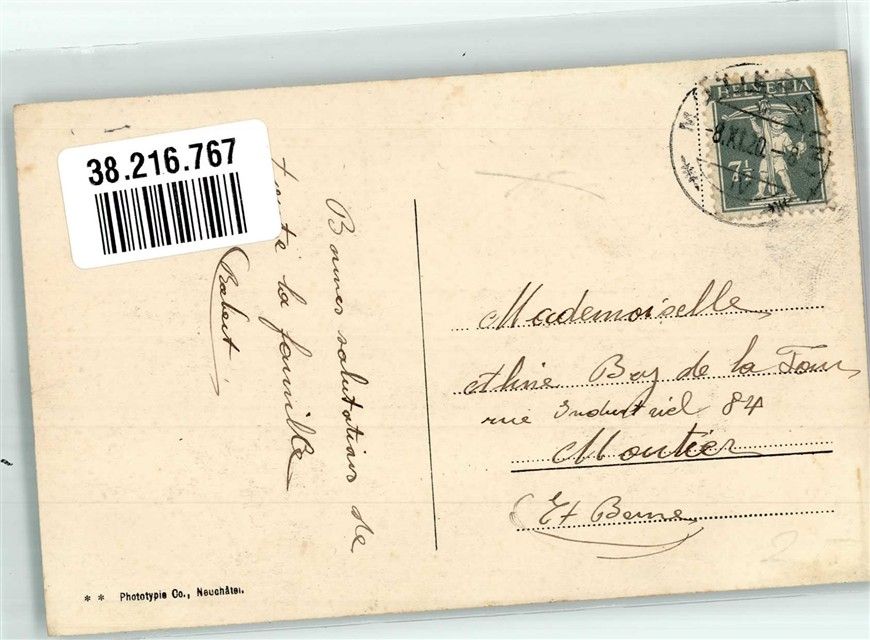 38.216.767
Bonnes salutations de
toute la famille
Robert
HELVETIA
7½
-8.XI.20.-8
Mademoiselle
Aline Boy de la Tour
rue Industriel 84
Moutier
Ct Berne
** Phototypie Co., Neuchâtel.